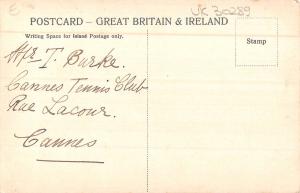 E
JK 30289
POSTCARD – GREAT BRITAIN & IRELAND
Writing Space for Island Postage only.
Stamp
Mr T. Burke.
Cannes Tennis Club
Rue Lacour.
Cannes